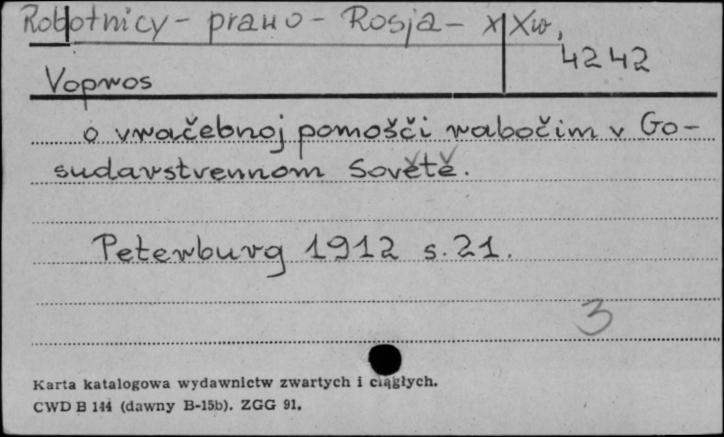 Robotnicy - prawo - Rosja - XXw,
4242
Vopros
o vračebnoj pomošči rabočim v Go-
sudarstvennom Sovětě.
Peterburg 1912 s. 21.
3
Karta katalogowa wydawnictw zwartych i ciągłych.
CWD B 144 (dawny B-15b). ZGG 91.